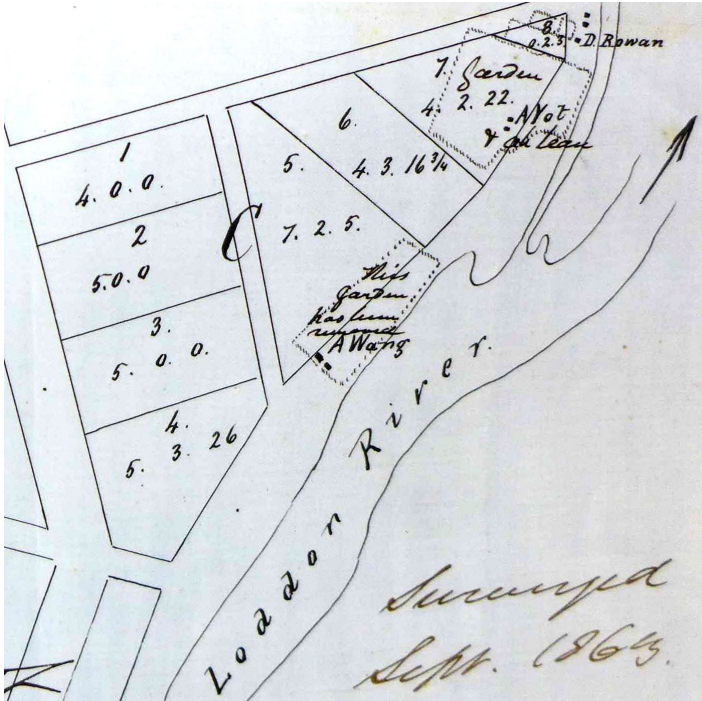 8.
0.2.3.
D. Rowan
7.
Garden
4. 2. 22.
A Yot
&
6.
4. 3. 16 3/4
5.
7. 2. 5.
C
1
4. 0. 0.
2
5.0.0
3.
5. 0. 0.
4.
5. 3. 26
This
Garden
has been
removed
A Wang
Loddon River.
Surveyed
Sept. 1863.